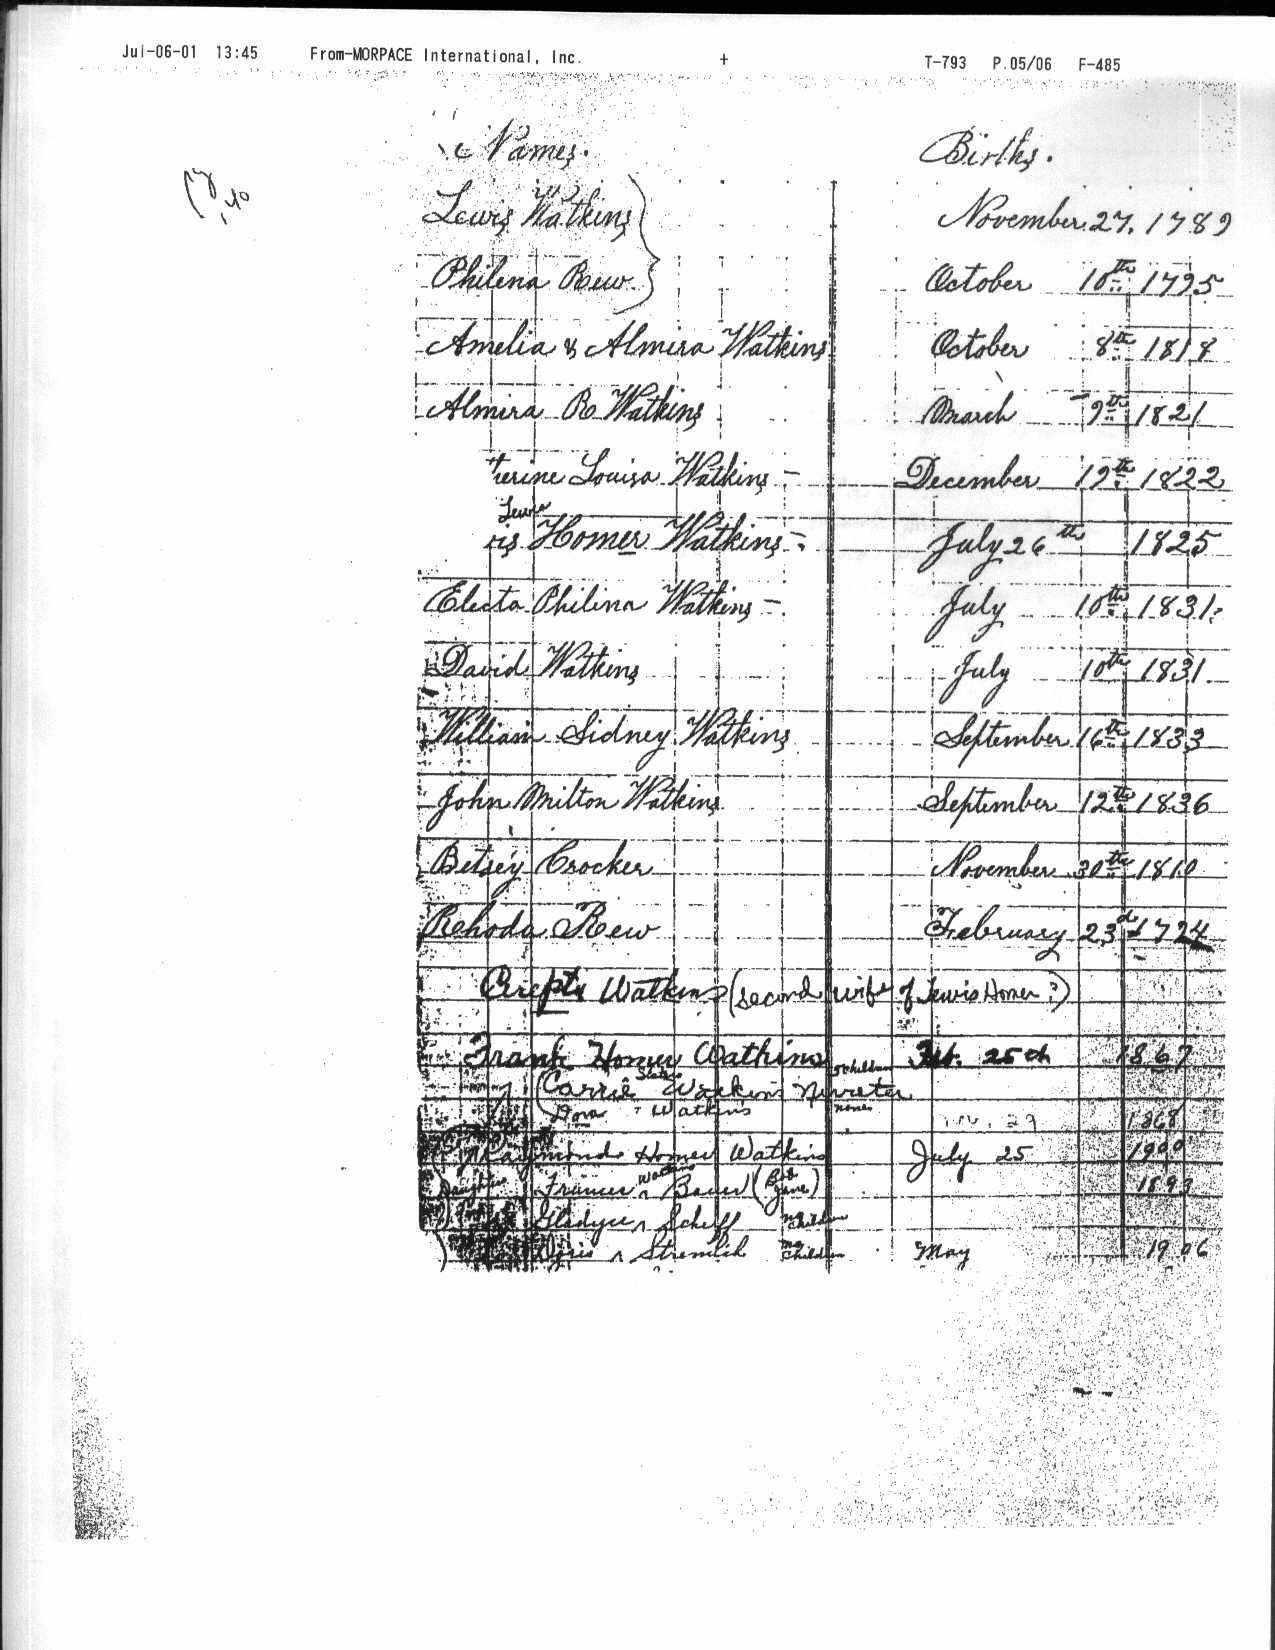 Jul-06-01 13:45 From-MORPACE International, Inc. + T-793 P.05/06 F-485
Names. Births.
Lewis Watkins November 27, 1789
Philena Rew October 10th 1795
Amelia & Almira Watkins October 8th 1818
Almira R Watkins March 9th 1821
therine Louisa Watkins - December 19th 1822
Lewis
is Homer Watkins - July 26th 1825
Electa Philina Watkins - July 10th 1831
David Watkins July 10th 1831
William Sidney Watkins September 16th 1833
John Milton Watkins September 12th 1836
Betsey Crocker November 30th 1810
Rehoda Rew February 23d 1724
Watkins (second wife of Lewis Homer?)
Frank Homer Watkins Feb. 25th 1867
Sisters children
Carrie Watkins
Dora Watkins none 29 1868
Raymond Homer Watkins July 25 1900
Daughters Frances Watkins Bauer (Bob Jane) 1893
Gladys Scheff no children
Doris Stremlich no children May 1906